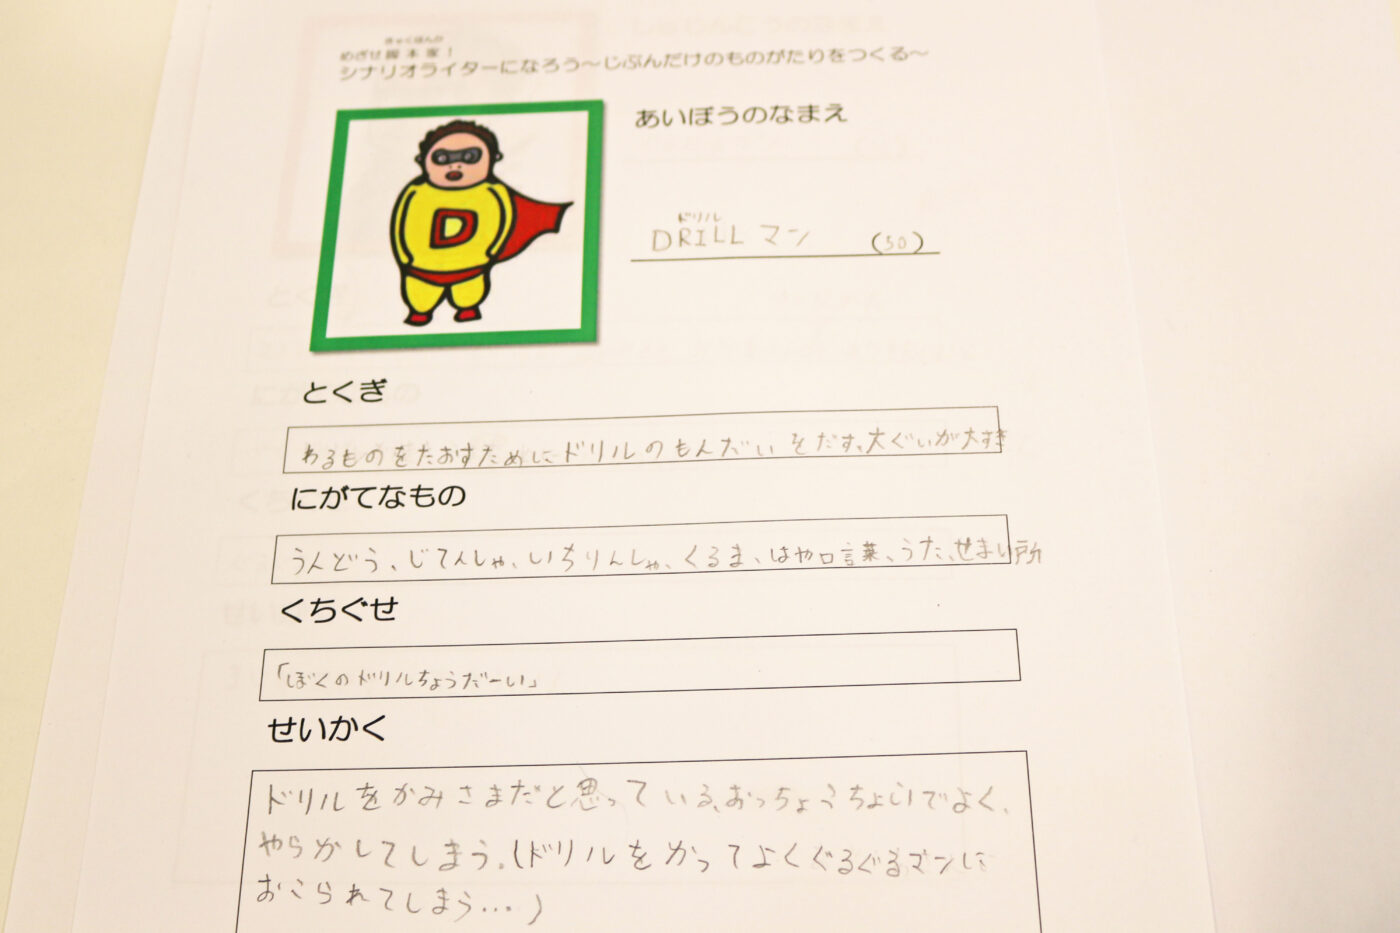 きゃくほんか
めざせ脚本家！
シナリオライターになろう～じぶんだけのものがたりをつくる～
あいぼうのなまえ
ドリル
DRILL マン (50)
D
とくぎ
わるものをたおすためにドリルのもんだいをだす、大ぐいが大すき
にがてなもの
うんどう、じてんしゃ、いちりんしゃ、くるま、はや口言葉、うた、せまい所
くちぐせ
「ぼくのドリルちょうだーい」
せいかく
ドリルをかみさまだと思っている、おっちょこちょいでよく、
やらかしてしまう。(ドリルをかってよくぐるぐるマンに
おこられてしまう…)